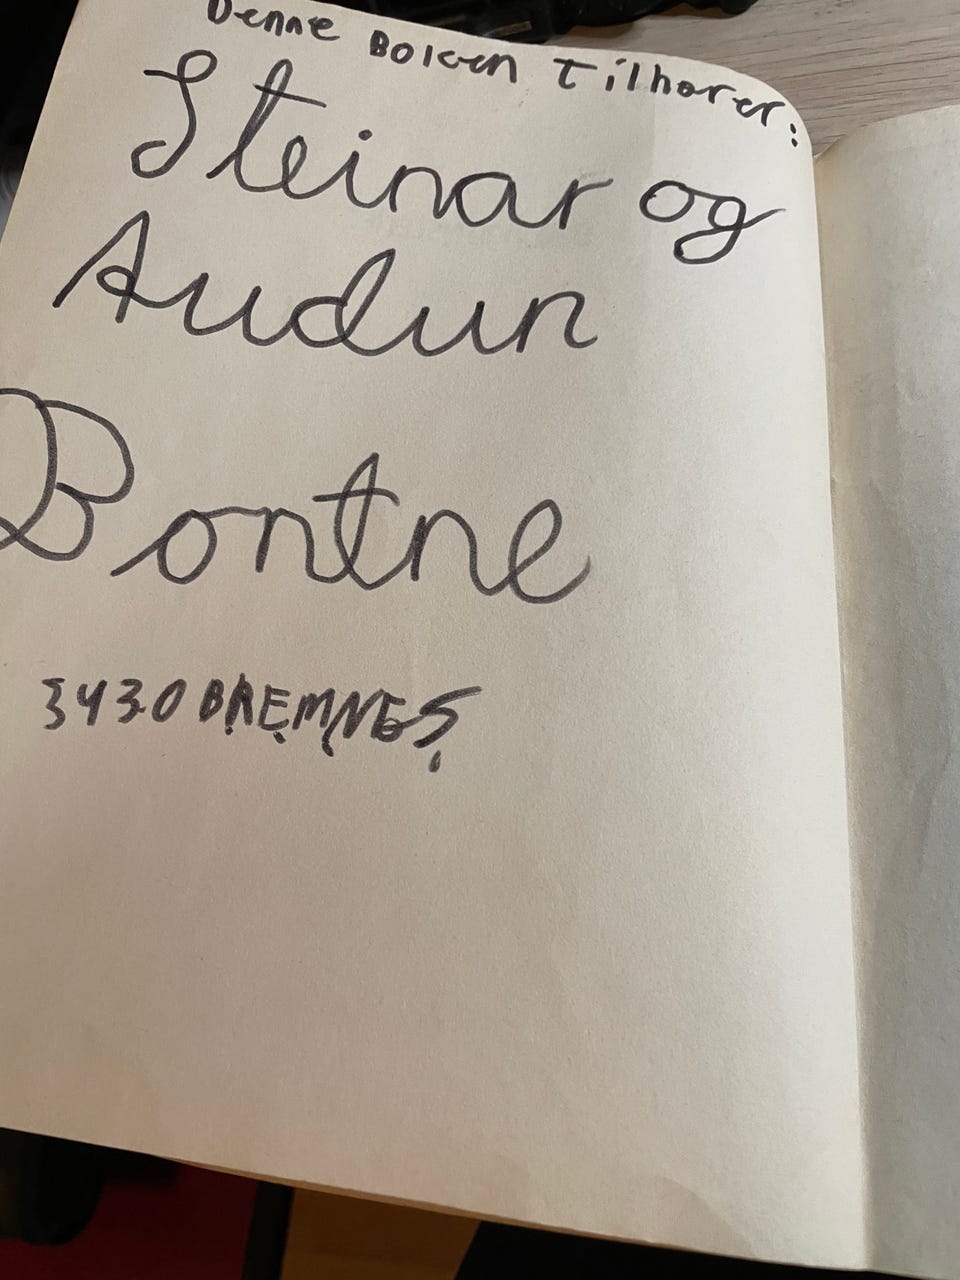 Denne Boken Tilhører:
Steinar og
Audun
Bontne
3430 BREMNES